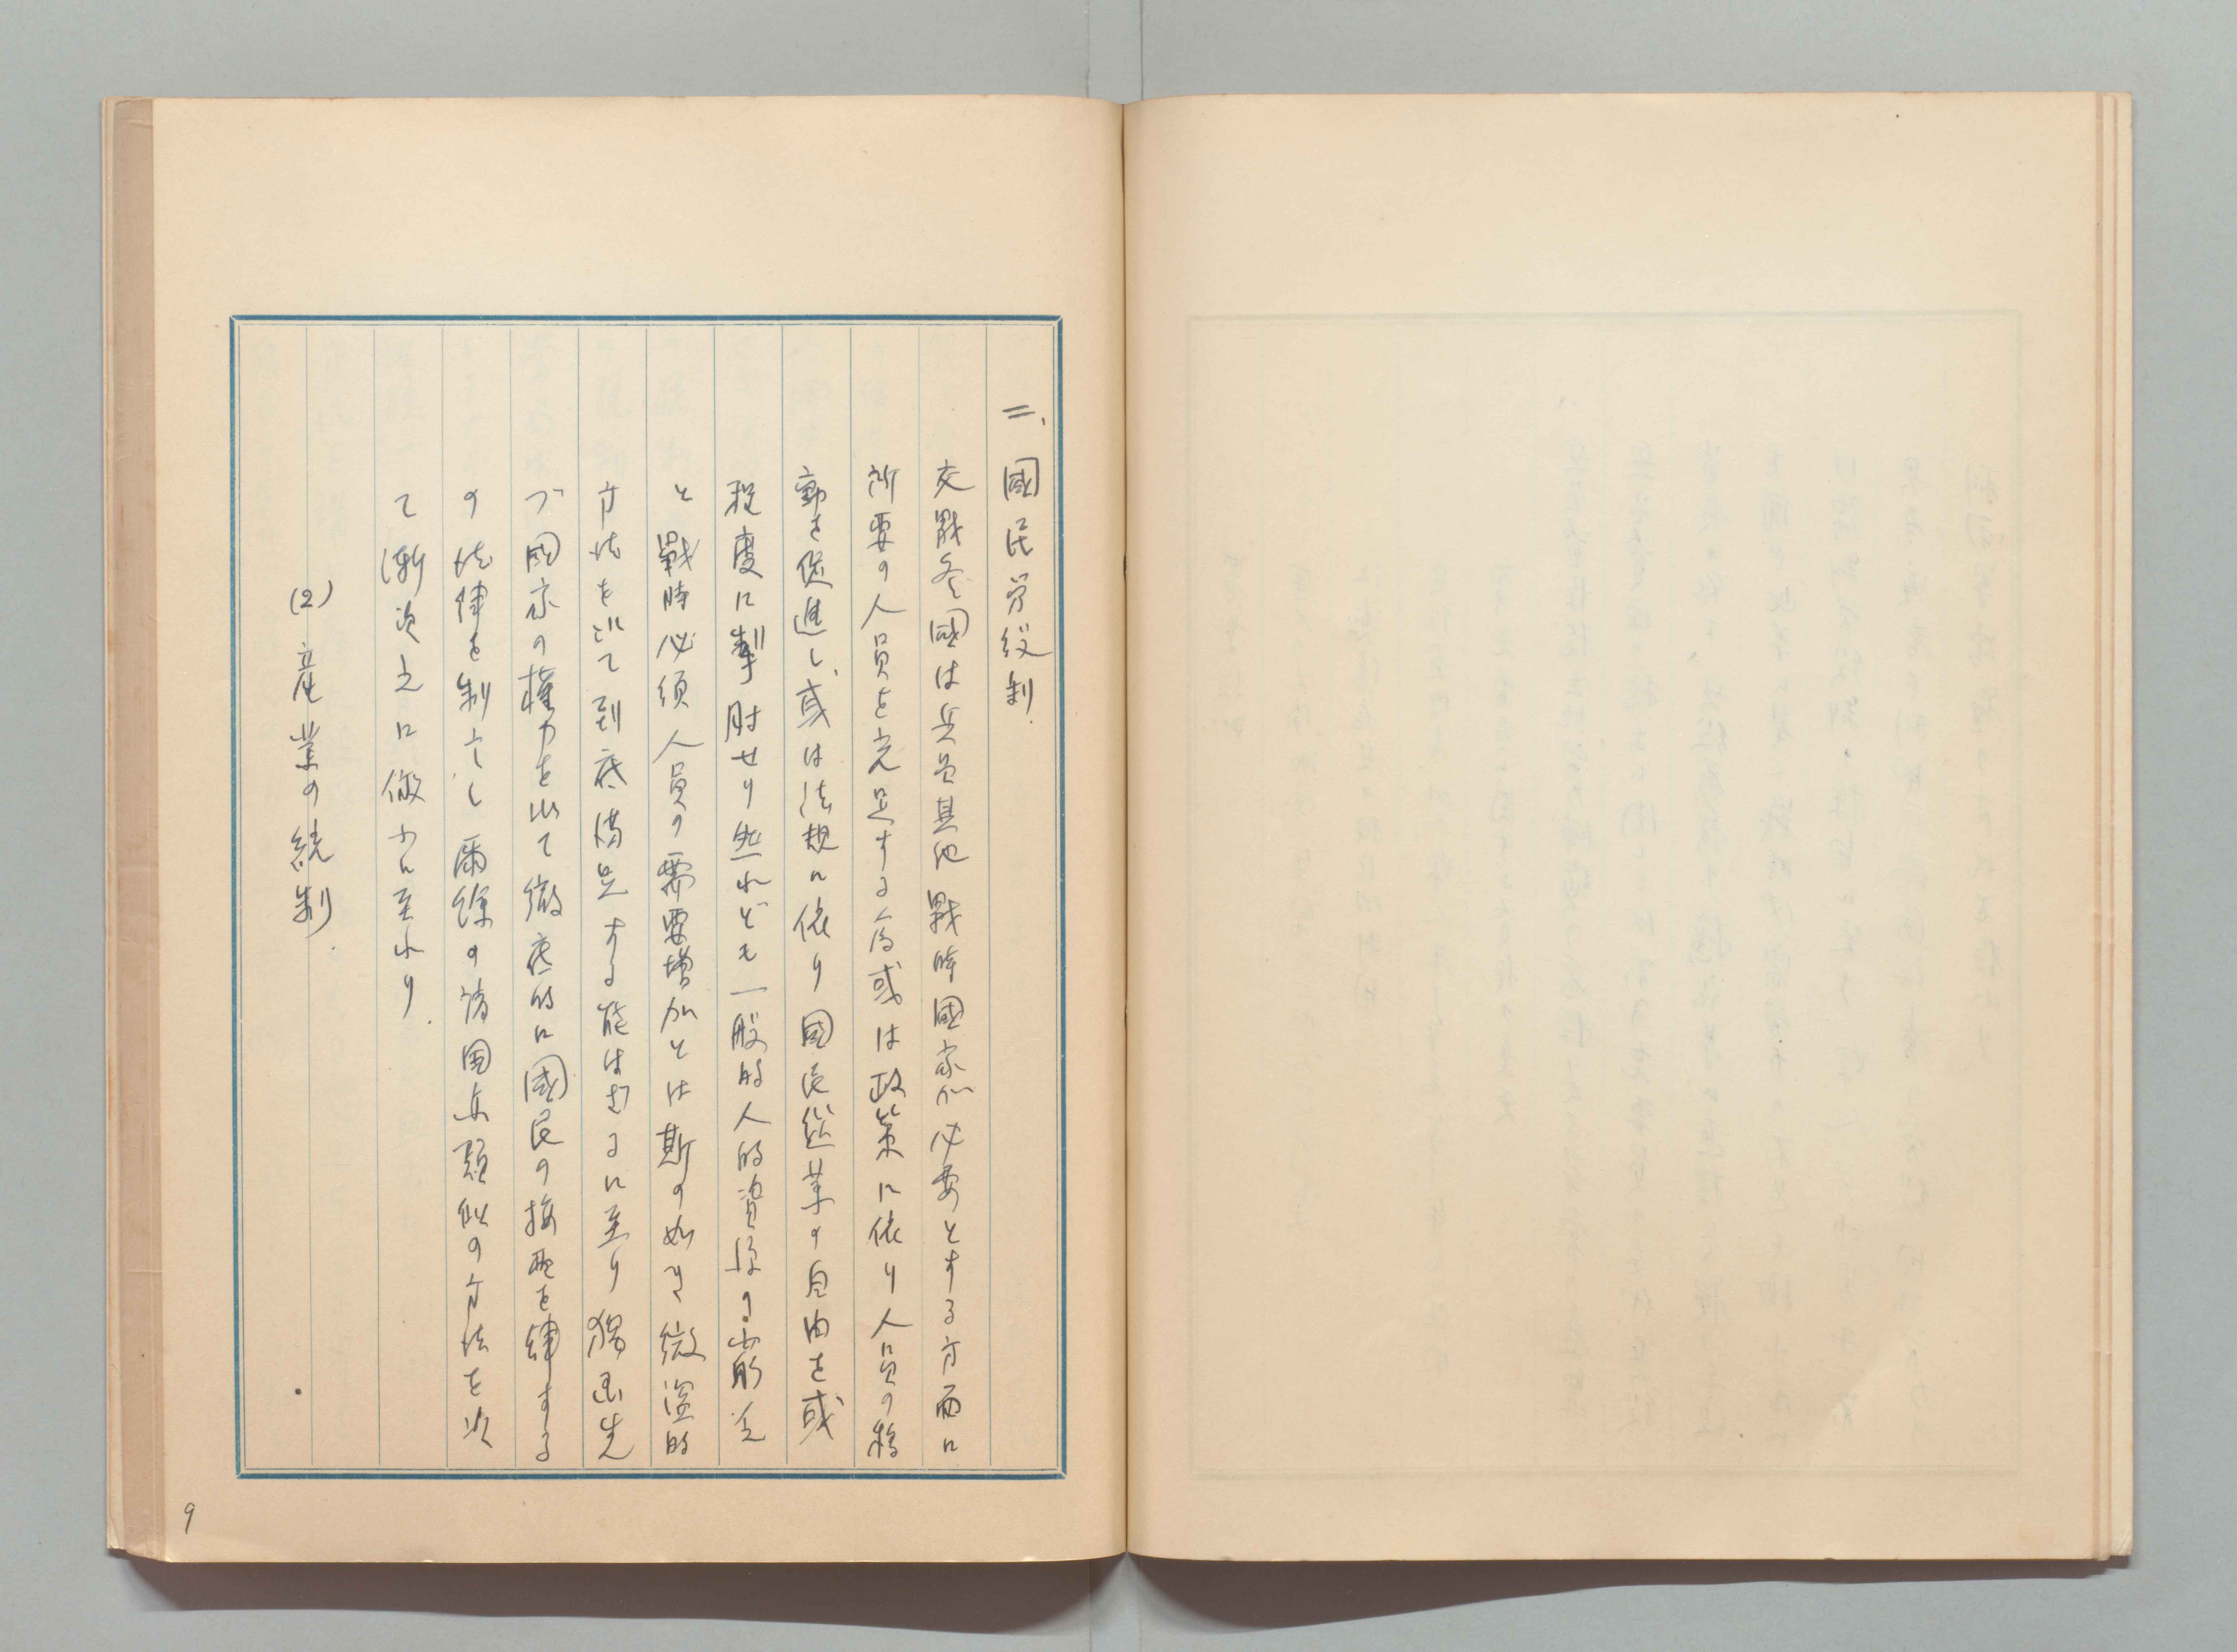 二、國民労役制.
交戰各國は兵員其他戰時國家が必要とする方面に
所要の人員を充足する為或は政策に依り人員の移
動を促進し、或は法規に依り國民從業の自由を或
程度に掣肘せり然れども一般的人的資源の窮乏
と戰時必須人員の需要增加とは斯の如き微溫的
方法を以て到底満足する能はざるに至り獨逸先
づ國家の權力を以て徹底的に國民の按配を律する
の法律を制定し爾餘の諸国亦類似の方法を以
て漸次之に倣ふに至れり.
(2) 産業の統制.
9